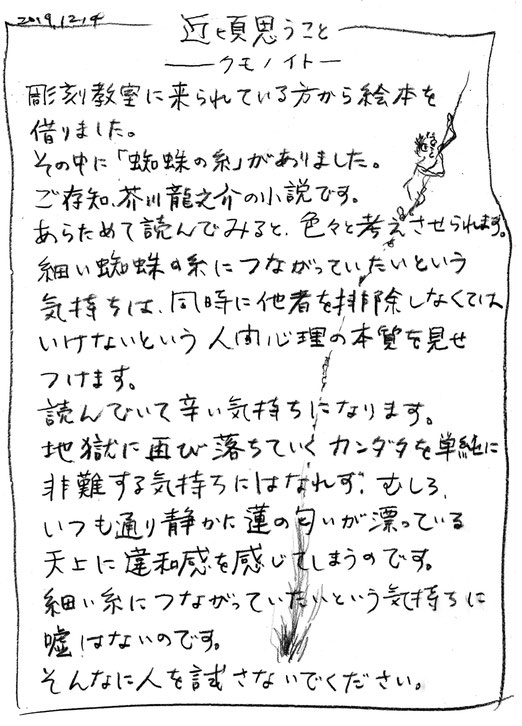 2019.12.14
近頃思うこと
―クモノイト―
彫刻教室に来られている方から絵本を
借りました。
その中に「蜘蛛の糸」がありました。
ご存知、芥川龍之介の小説です。
あらためて読んでみると、色々と考えさせられます。
細い蜘蛛の糸につながっていたいという
気持ちは、同時に他者を排除しなくては
いけないという人間心理の本質を見せ
つけます。
読んでいて辛い気持ちになります。
地獄に再び落ちていくカンダタを単純に
非難する気持ちにはなれず、むしろ、
いつも通り静かに蓮の匂いが漂っている
天上に違和感を感じてしまうのです。
細い糸につながっていたいという気持ちに
嘘はないのです。
そんなに人を試さないでください。